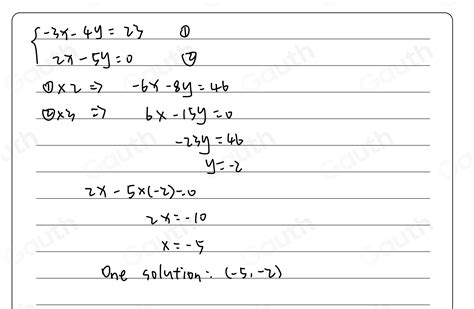 -3x - 4y = 23 ①
2x - 5y = 0 ②
①×2 => -6x - 8y = 46
②×3 => 6x - 15y = 0
-23y = 46
y = -2
2x - 5×(-2) = 0
2x = -10
x = -5
One solution: (-5, -2)